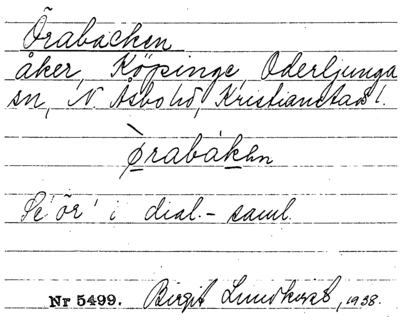 Örabacken
åker, Köpinge, Oderljunga
sn, N. Åsbo hd, Kristianstads l.
ø̀rabákən
Se 'ör' i dial.-saml.
Nr 5499. Birgit Lundkvist, 1938.